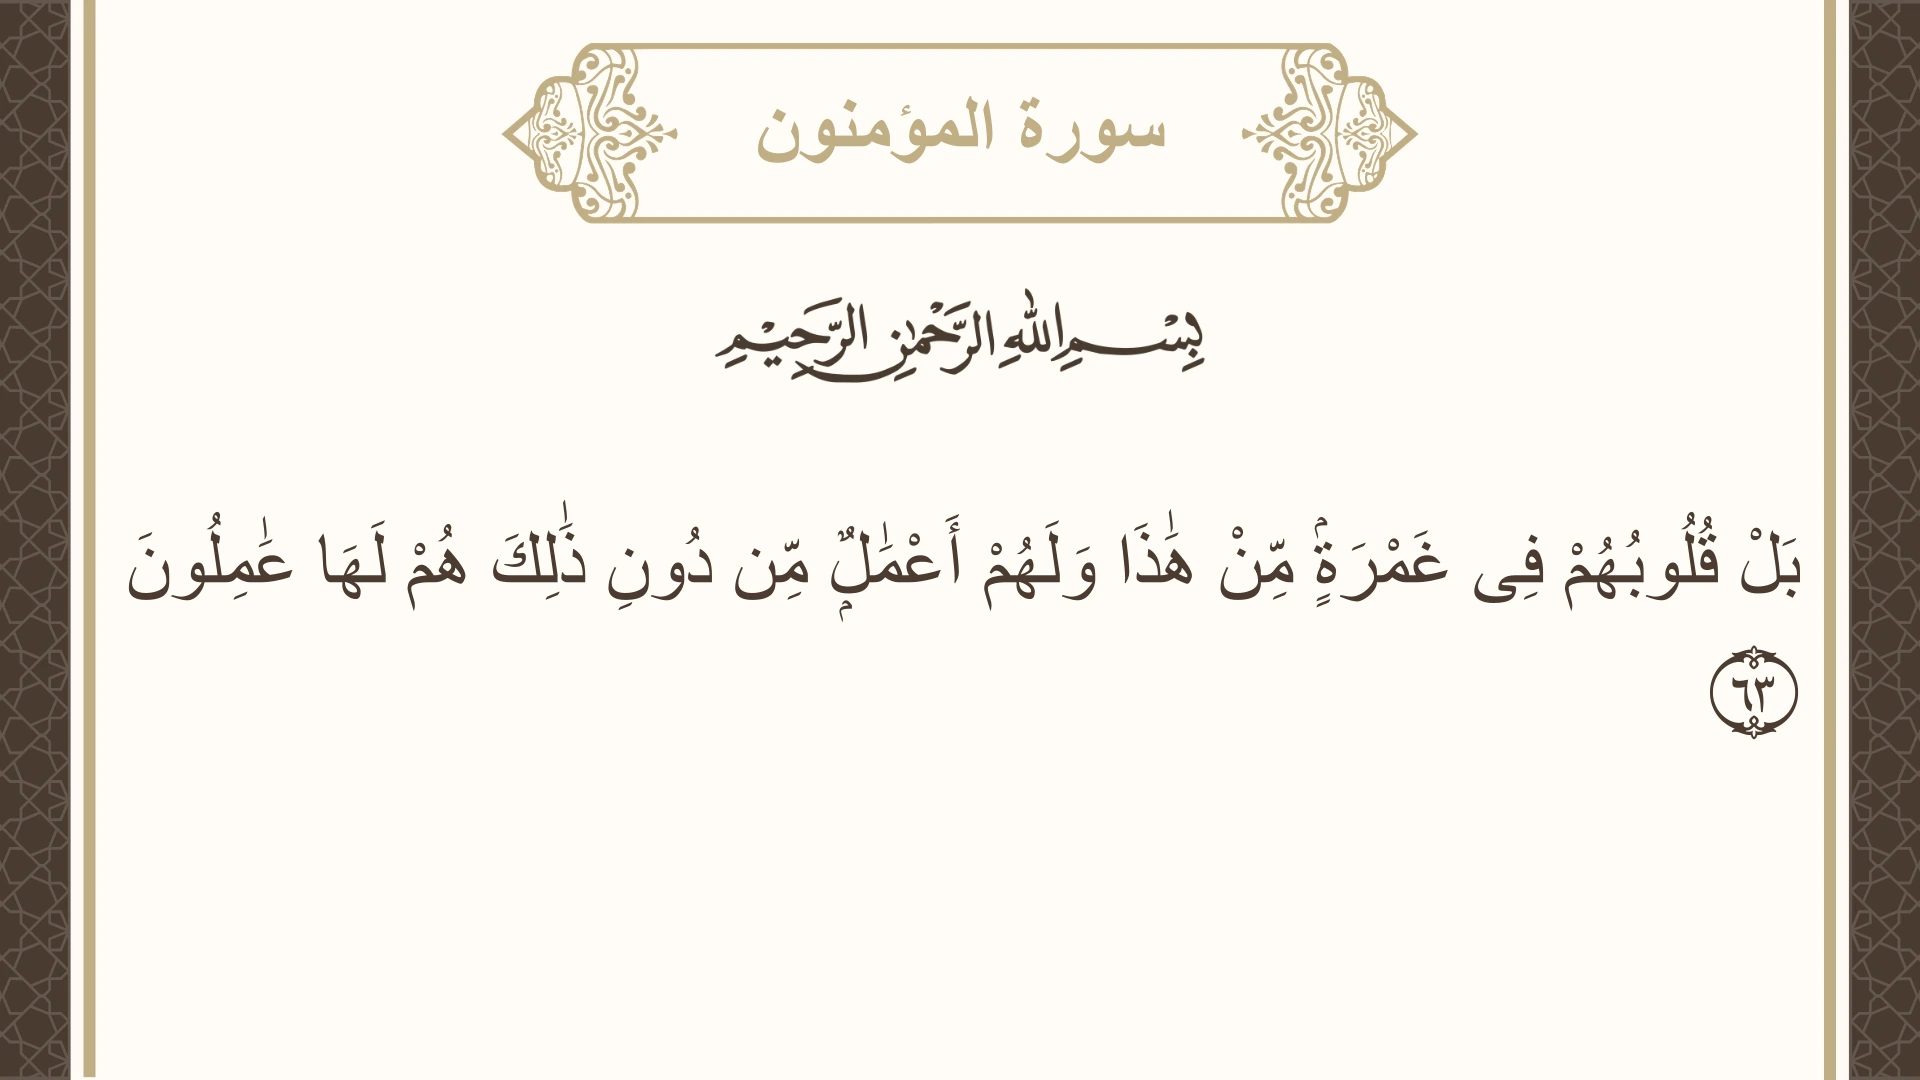 سورة المؤمنون
بِسْمِ اللهِ الرَّحْمٰنِ الرَّحِيْمِ
بَلْ قُلُوبُهُمْ فِى غَمْرَةٍۢ مِّنْ هَٰذَا وَلَهُمْ أَعْمَٰلٌۭ مِّن دُونِ ذَٰلِكَ هُمْ لَهَا عَٰمِلُونَ
٦٣